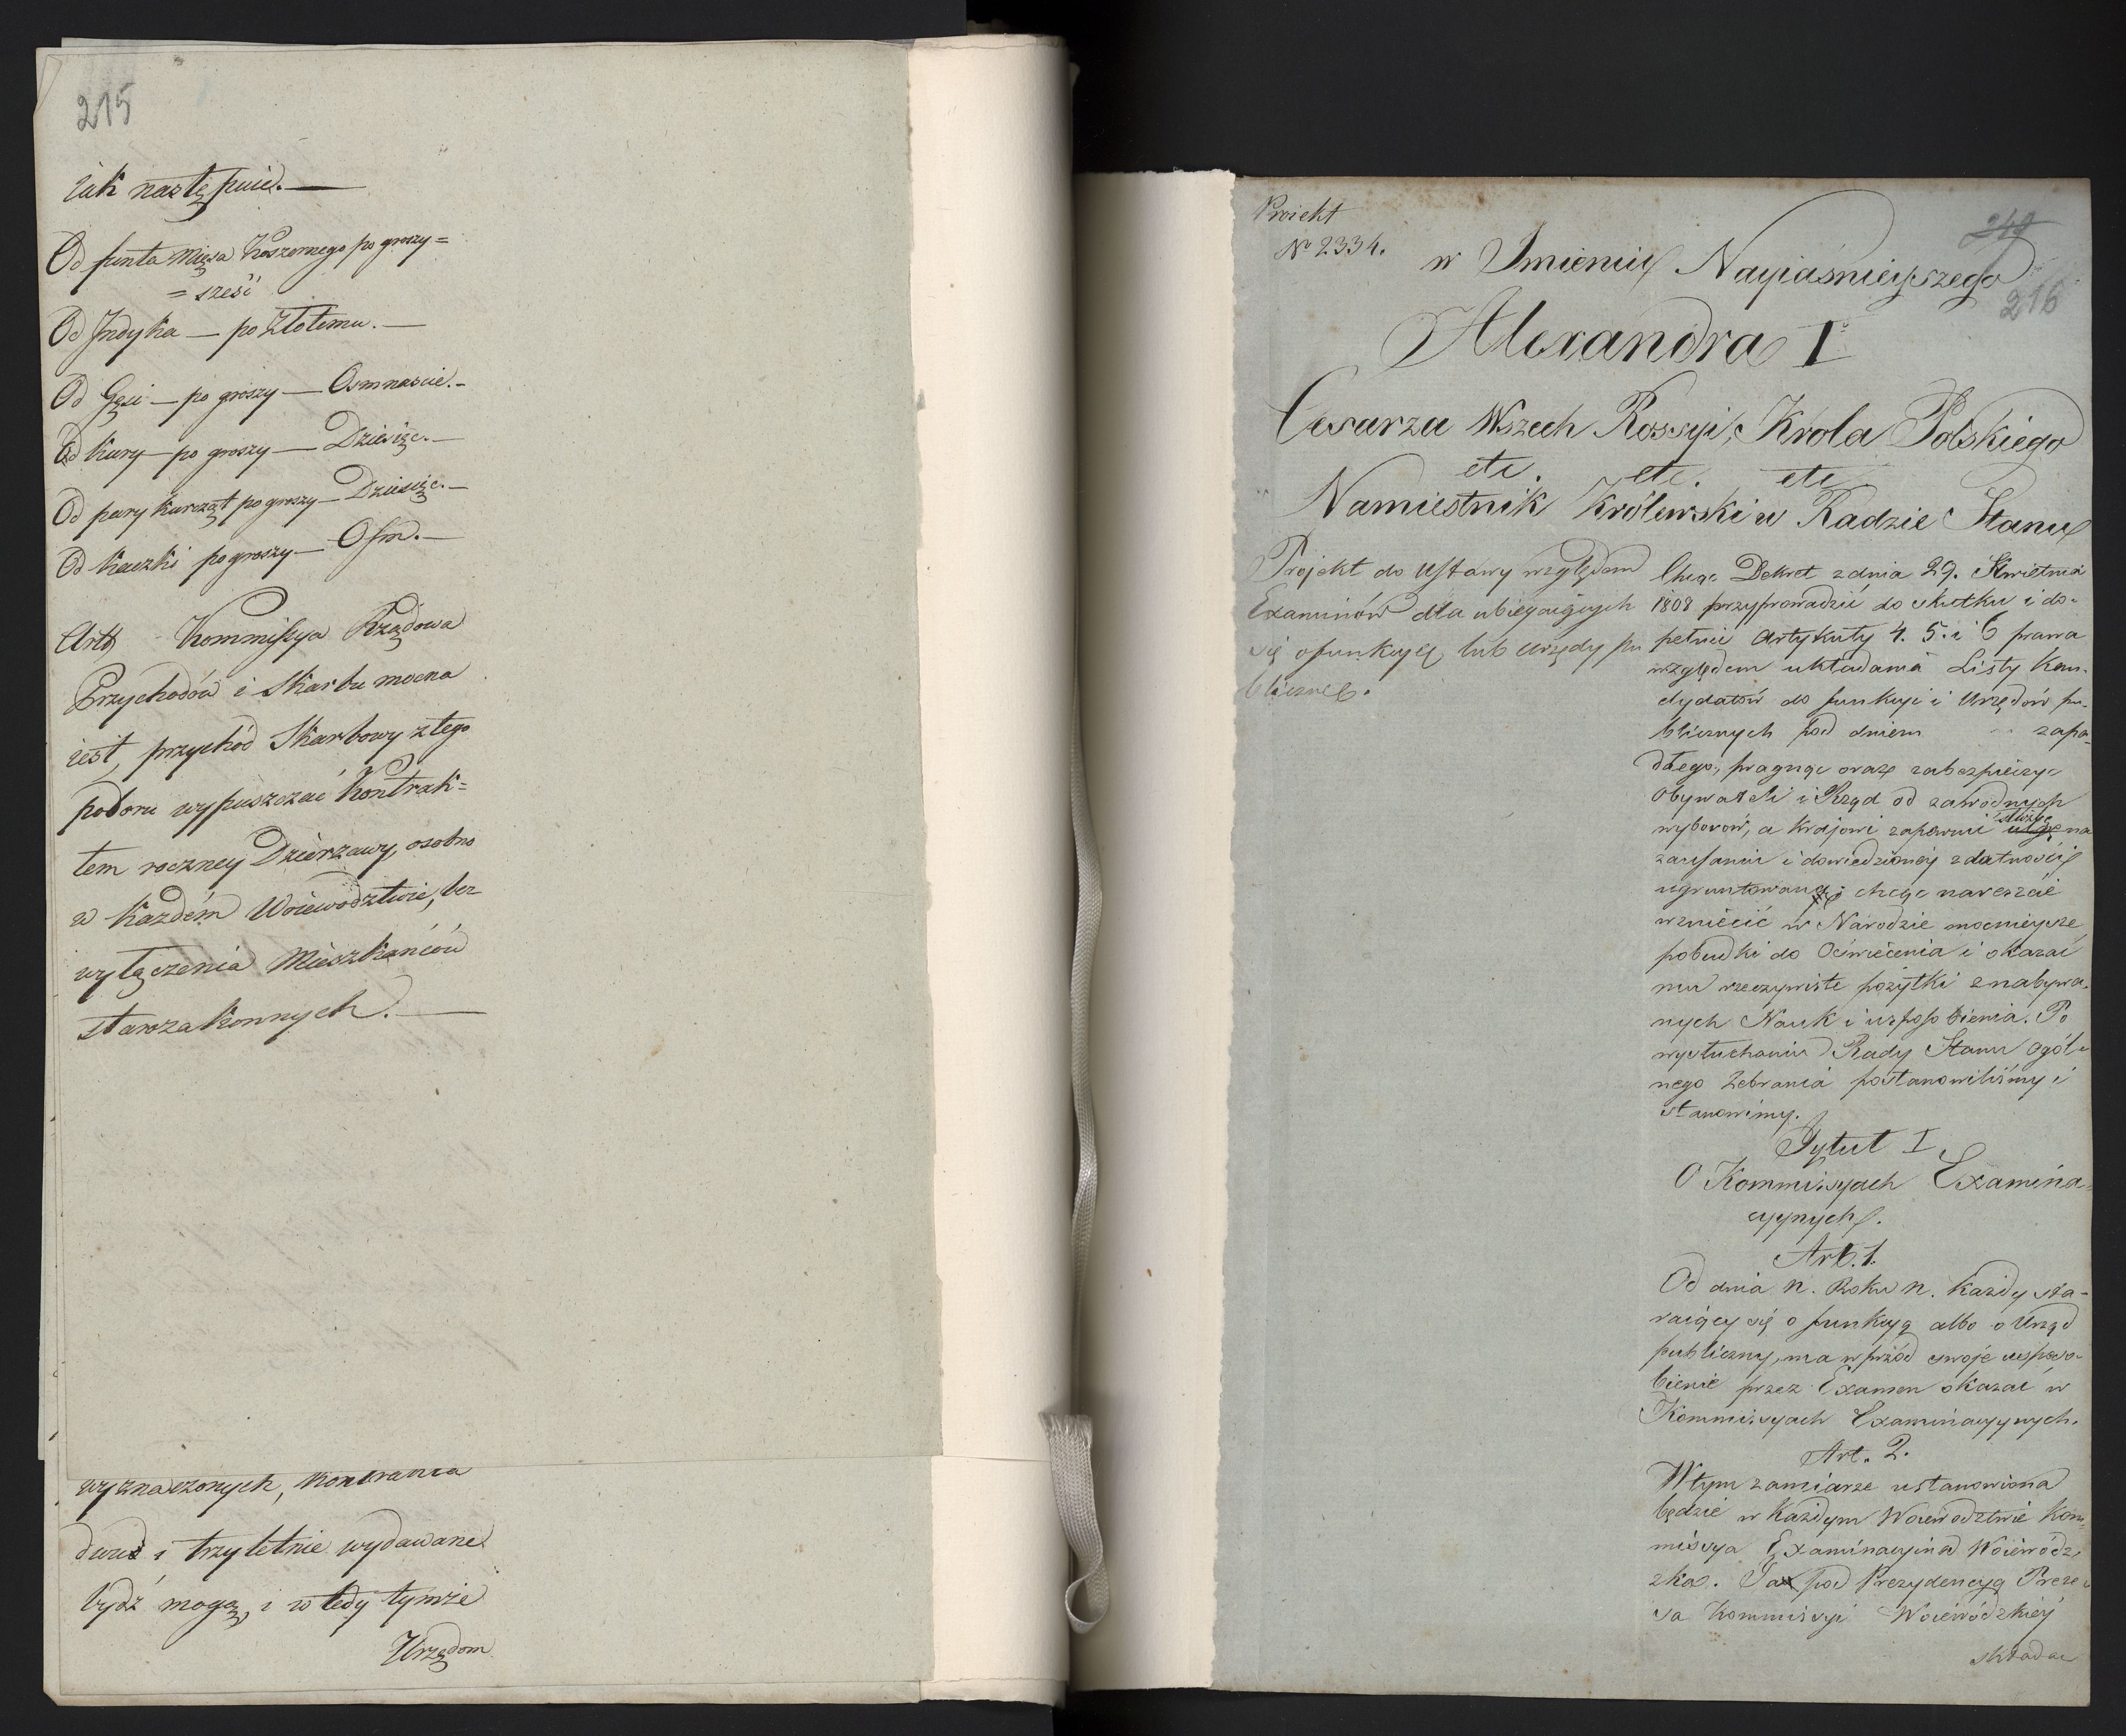 215
iak następuie.—
Od funta Mięsa Koszernego po groszy=
= sześć
Od Indyka — po Złotemu. —
Od Gęsi — po groszy — Osmnascie.—
Od kury — po groszy — Dziesięc.—
Od pary kurcząt po groszy — Dziesięc.—
Od kaczki po groszy — Ośm.—
Art Kommissya Rządowa
Przychodów i Skarbu mocna
iest, przychód Skarbowy z tego
poboru wypuszczać Kontrak=
tem roczney Dzierzawy, osobno
w każdém Woiewodztwie, bez
wyłączenia Mieszkańców
starozakonnych.—
wyznaczonych, kontrakta
dwu i trzyletnie wydawane
bydź mogą, i wtedy tymże
Urzędom
Proiekt
No 2334.
w Imieniu Nayiaśnieyszego
219
216
Alexandra I
Cesarza Wszech Rossyi, Króla Polskiego
etc. etc. etc
Namiestnik Królewski w Radzie Stanu
Projekt do Ustawy względem
Examinów dla ubiegaiących
się o funkcye lub Urzędy pu
bliczne.
Chcąc Dekret z dnia 29. Kwietnia
1808 przyprowadzić do skutku i do-
pełnić Artykuły 4. 5. i 6 prawa
względem układania Listy Kan-
dydatów do funkcyi i Urzędów pu-
blicznych pod dniem zapa-
dłego, pragnąc oraz zabezpieczyc
Obywateli i Rząd od zawodnych
wyborów, a krajowi zapewnić służbę na
zaufaniu i dowiedzioney zdatności
ugruntowaną; chcąc nareszcie
wzniecić w Narodzie mocnieysze
pobudki do Oświecenia i okazać
mu rzeczywiste pożytki z nabywa-
nych Nauk i usposobienia. Po
wysłuchaniu Rady Stanu Ogól-
nego Zebrania postanowiliśmy i
stanowimy.
Tytuł I
O Kommissyach Examina-
cyynych.
Art. 1.
Od dnia n. Roku n. każdy sta-
raiący się o funkcyą albo o Urząd
publiczny, ma wprzód swoje usposo-
bienie przez Examen okazać w
Kommissyach Examinacyynych.
Art. 2.
W tym zamiarze ustanowiona
będzie w każdym Woiewodztwie Kom-
missya Examinacyina Woiewódz-
zka. Ta pod Prezydencyą Preze-
sa Kommissyi Woiewódzkiey
składac